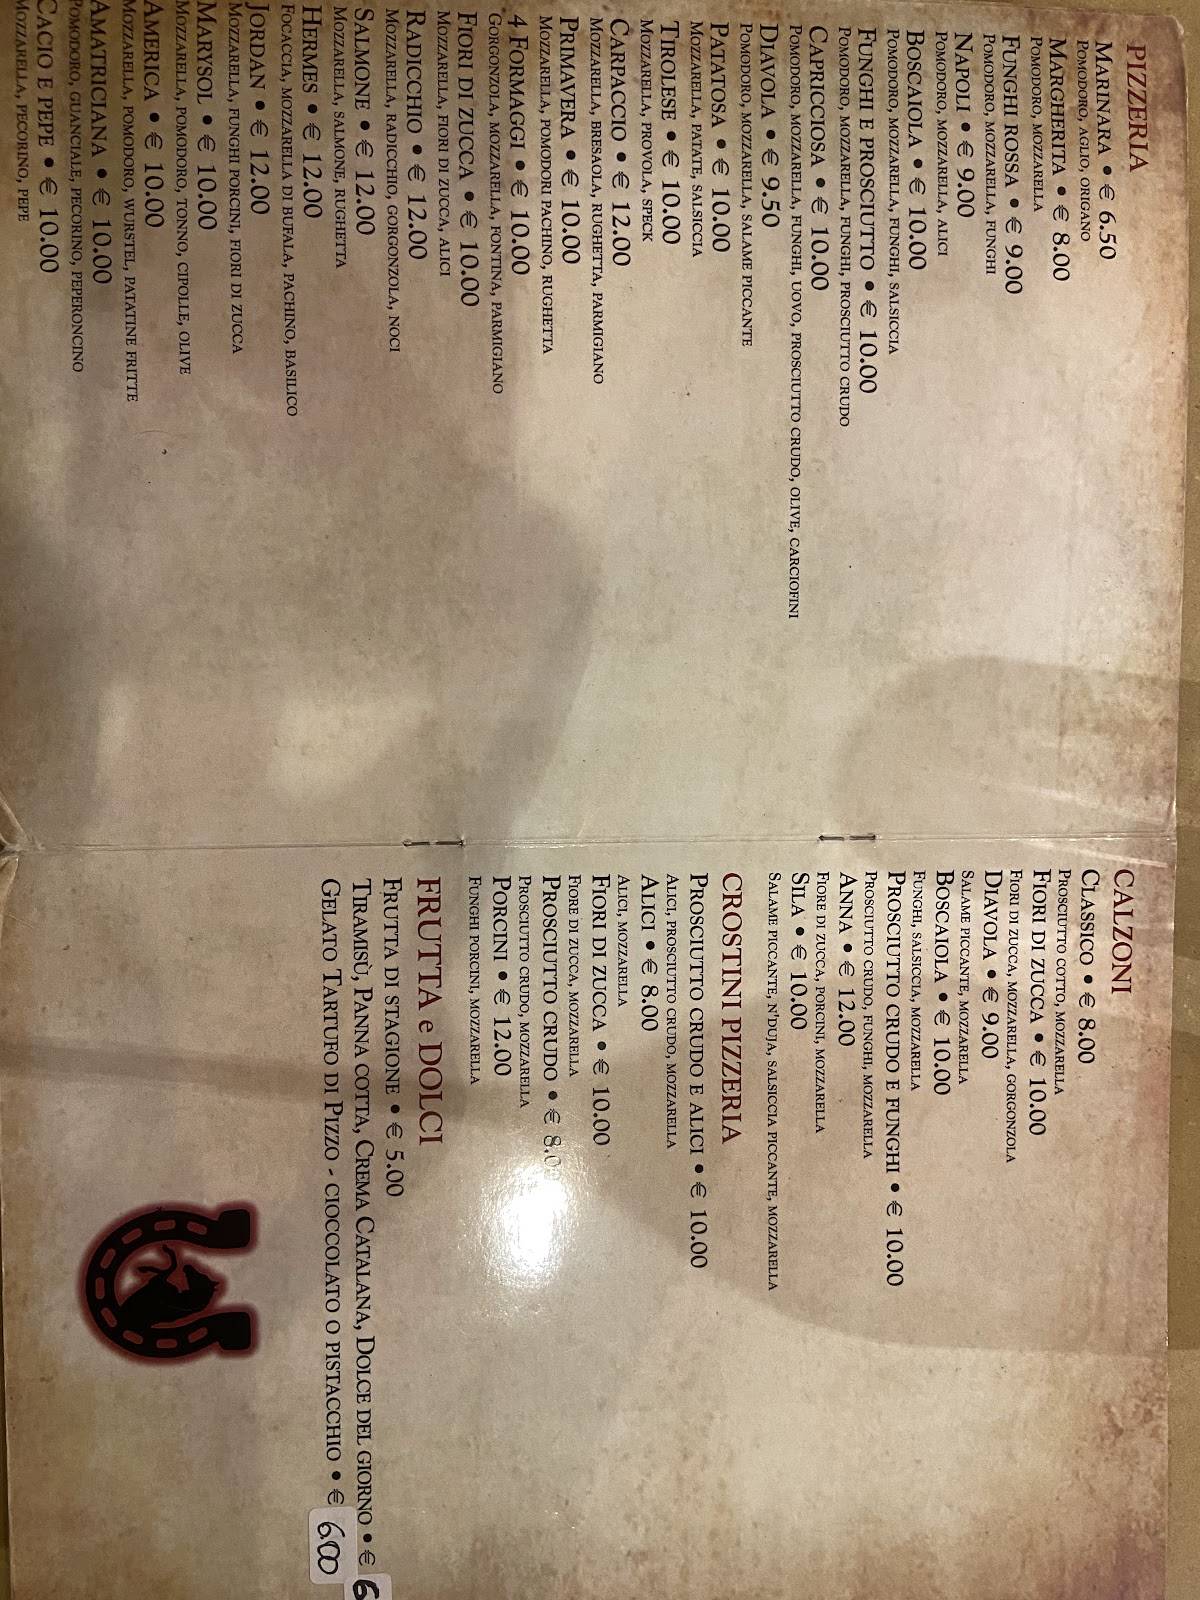 PIZZERIA
MARINARA • € 6.50
POMODORO, AGLIO, ORIGANO
MARGHERITA • € 8.00
POMODORO, MOZZARELLA
FUNGHI ROSSA • € 9.00
POMODORO, MOZZARELLA, FUNGHI
NAPOLI • € 9.00
POMODORO, MOZZARELLA, ALICI
BOSCAIOLA • € 10.00
POMODORO, MOZZARELLA, FUNGHI, SALSICCIA
FUNGHI E PROSCIUTTO • € 10.00
POMODORO, MOZZARELLA, FUNGHI, PROSCIUTTO CRUDO
CAPRICCIOSA • € 10.00
POMODORO, MOZZARELLA, FUNGHI, UOVO, PROSCIUTTO CRUDO, OLIVE, CARCIOFINI
DIAVOLA • € 9.50
POMODORO, MOZZARELLA, SALAME PICCANTE
PATATOSA • € 10.00
MOZZARELLA, PATATE, SALSICCIA
TIROLESE • € 10.00
MOZZARELLA, PROVOLA, SPECK
CARPACCIO • € 12.00
MOZZARELLA, BRESAOLA, RUGHETTA, PARMIGIANO
PRIMAVERA • € 10.00
MOZZARELLA, POMODORI PACHINO, RUGHETTA
4 FORMAGGI • € 10.00
GORGONZOLA, MOZZARELLA, FONTINA, PARMIGIANO
FIORI DI ZUCCA • € 10.00
MOZZARELLA, FIORI DI ZUCCA, ALICI
RADICCHIO • € 12.00
MOZZARELLA, RADICCHIO, GORGONZOLA, NOCI
SALMONE • € 12.00
MOZZARELLA, SALMONE, RUGHETTA
HERMES • € 12.00
FOCACCIA, MOZZARELLA DI BUFALA, PACHINO, BASILICO
JORDAN • € 12.00
MOZZARELLA, FUNGHI PORCINI, FIORI DI ZUCCA
MARYSOL • € 10.00
MOZZARELLA, POMODORO, TONNO, CIPOLLE, OLIVE
AMERICA • € 10.00
MOZZARELLA, POMODORO, WURSTEL, PATATINE FRITTE
AMATRICIANA • € 10.00
POMODORO, GUANCIALE, PECORINO, PEPERONCINO
CACIO E PEPE • € 10.00
MOZZARELLA, PECORINO, PEPE
CALZONI
CLASSICO • € 8.00
PROSCIUTTO COTTO, MOZZARELLA
FIORI DI ZUCCA • € 10.00
FIORI DI ZUCCA, MOZZARELLA, GORGONZOLA
DIAVOLA • € 9.00
SALAME PICCANTE, MOZZARELLA
BOSCAIOLA • € 10.00
FUNGHI, SALSICCIA, MOZZARELLA
PROSCIUTTO CRUDO E FUNGHI • € 10.00
PROSCIUTTO CRUDO, FUNGHI, MOZZARELLA
ANNA • € 12.00
FIORE DI ZUCCA, PORCINI, MOZZARELLA
SILA • € 10.00
SALAME PICCANTE, N'DUJA, SALSICCIA PICCANTE, MOZZARELLA
CROSTINI PIZZERIA
PROSCIUTTO CRUDO E ALICI • € 10.00
ALICI, PROSCIUTTO CRUDO, MOZZARELLA
ALICI • € 8.00
ALICI, MOZZARELLA
FIORI DI ZUCCA • € 10.00
FIORE DI ZUCCA, MOZZARELLA
PROSCIUTTO CRUDO • € 8.0
PROSCIUTTO CRUDO, MOZZARELLA
PORCINI • € 12.00
FUNGHI PORCINI, MOZZARELLA
FRUTTA e DOLCI
FRUTTA DI STAGIONE • € 5.00
TIRAMISÙ, PANNA COTTA, CREMA CATALANA, DOLCE DEL GIORNO • € 6
GELATO TARTUFO DI PIZZO - CIOCCOLATO O PISTACCHIO • € 6.00